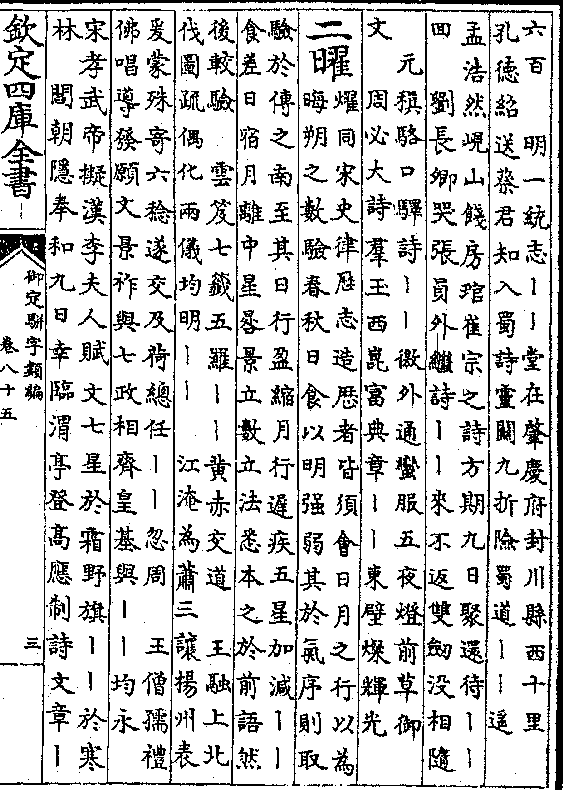 六百　明一統志丨丨堂在肇慶府封川縣西十里
孔德紹送蔡君知入蜀詩靈關九折險蜀道丨丨遥
孟浩然峴山餞房琯崔宗之詩方期九日聚還待丨丨
回　劉長卿哭張員外繼詩丨丨來不返雙劍没相隨
元稹駱口驛詩丨丨徼外通蠻服五夜燈前草御
文　周必大詩羣玉西崑富典章丨丨東壁燦輝光
二曜
燿同宋史律厯志造厯者皆須會日月之行以為
晦朔之數驗春秋日食以明强弱其於氣序則取
驗於傳之南至其日行盈縮月行遲疾五星加減丨丨
食差日宿月離中星晷景立數立法悉本之於前語然
後較驗　雲笈七籖五羅丨丨黄赤交道　王融上北
伐圖疏偶化兩儀均明丨丨　江淹為蕭三讓揚州表
爰蒙殊寄六稔遂交及荷總任丨丨忽周　王僧孺禮
佛唱導發願文景祚與七政相齊皇基與丨丨均永
宋孝武帝擬漢李夫人賦文七星於霜野旗丨丨於寒
林　閻朝隱奉和九日幸臨渭亭登高應制詩文章丨
欽定四庫全書
御定駢字類編
卷八十五
三